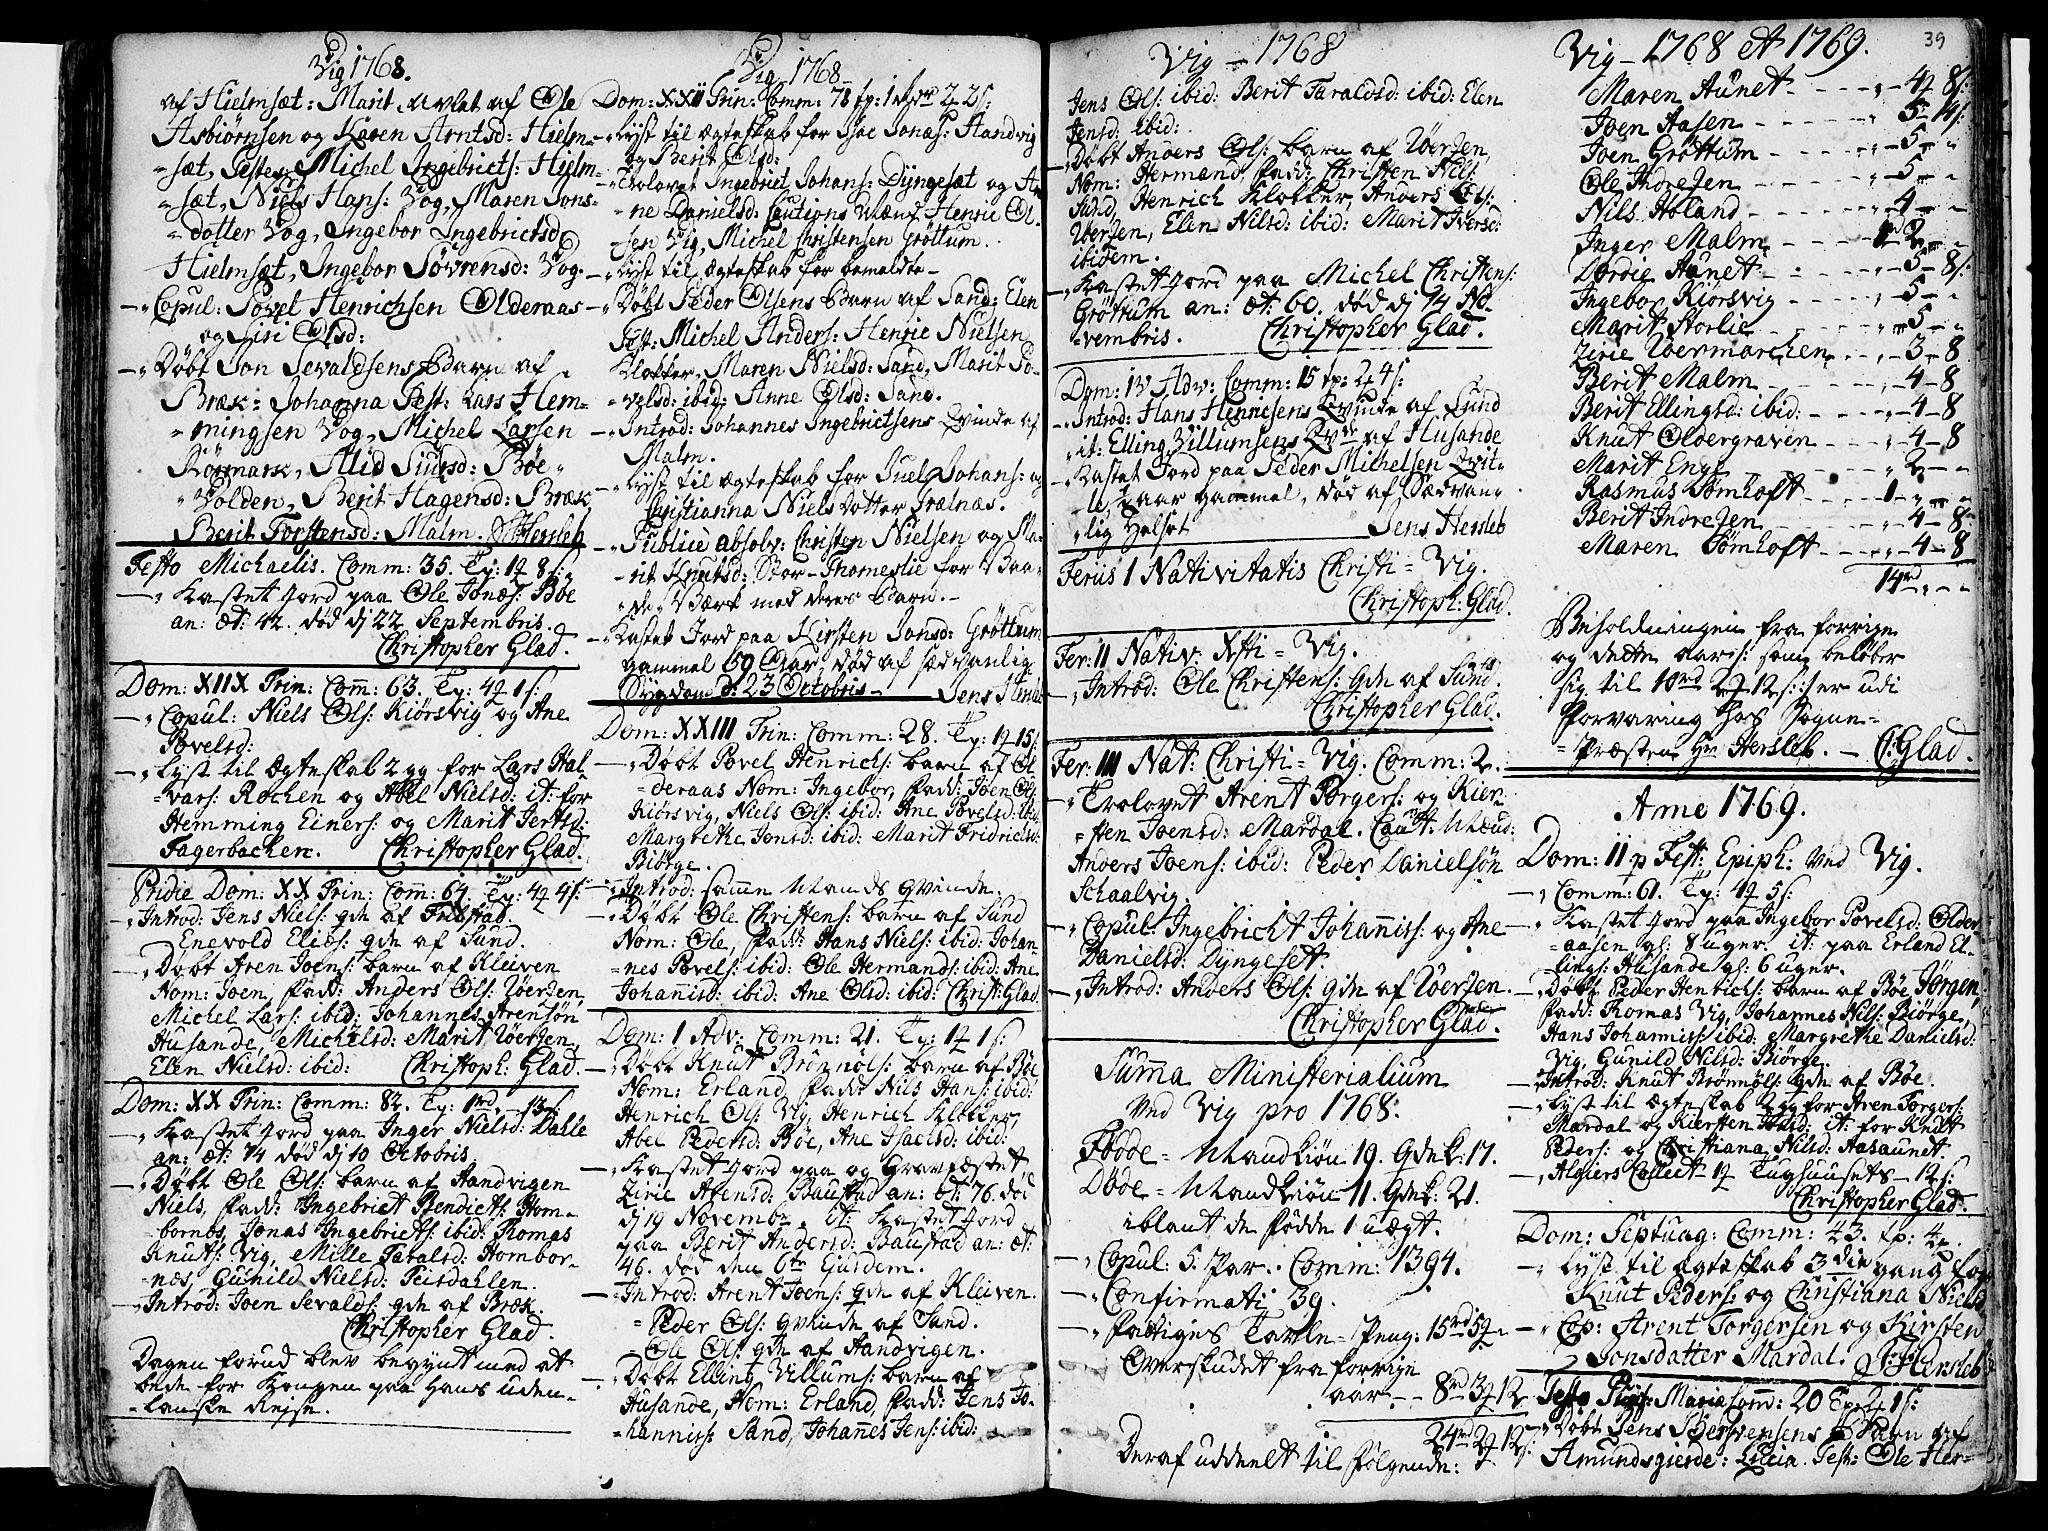 Vig 1768.
af Hielmsæt: Marit. Avlet af Ole
Asbiörnsen og Karen Arntsd: Hielm-
-sæt, Testes Michel Ingebriets: Hielm-
-sæt, Niels Hans: Vog, Maren Jons-
-dotter Vog, Ingebor Ingebrictsd:
Hielmsæt, Ingebor Sövrensd: Vog.
-„ Copul: Povel Henrichsen Olderaas
og Siri Olsd:
-„ Döbt Jon Sevaldsens Barn af
Bræk: Johanna Test: Lars Hem-
-mingsen Vog, Michel Larsen
Sörmark, Alid Siursd: Böe
Volden, Berit Hagensd: Bræk,
Berit Torstensd: Malm. JHersleb
Festo Michaelis. Comm: 35. Tz: 1 ꝗ 8 s:
-„ Kastet Jord paa Ole Jonæs: Böe
an: æt: 42. död dj 22 Septembris.
Christopher Glad.
Dom: XIIX Trin: Com: 63. Tz: 4 ꝗ 1 s:
-„ Copul: Niels Ols: Kiörsvig og Ane
Povelsd:
-„ Lyst til Egteskab 2 gg for Lars Hal-
-vars: Rochen og Abel Nielsd: it: for
Hemming Einers: og Marit Jertsd:
Fagerbachen. Christopher Glad.
Pridie Dom: XX Trin: Com: 64. Tz: 4 ꝗ 4 s:
-„ Introd: Jens Niels: qde af Fristad.
Enevold Eliæs: qde af Sund.
-„ Döbt Aren Joens: barn af Kleiven
Nom: Joen, fadd: Anders Ols: Uversen,
Michel Lars: ibid: Johannes Arensön
Husande, Michelsd: Marit Uversen,
Elen Nielsd: ibid: Christoph: Glad.
Dom: XX Trin: Comm: 82. Tz: 1 rd. 13 s
-„ Kastet Jord paa Inger Nielsd: Dahle
an: æt: 74 död dj 10 Octobris.
-„ Döbt Ole Ols: barn af Handvigen
Niels, fadd: Ingebriet Bendicts: Hom-
bornes, Jonas Ingebriets: ibid: Thomas
Knuts: Vig, Mille Taralsd: Hombor-
-næs, Gunild Nielsd: Teisdahlen.
-„ Introd: Joen Sevalds: qde af Bræk.
Christopher Glad.
Dagen forud blev begyndt med at
bede for Kongen paa Hans uden-
-lanske Rejse.
Vig 1768
Dom: XXII Trin: Comm: 78 Tp: 1 rd 2 ꝗ 2 s:
-„ Lyst til Ægteskab for Isac Jonas: Handvig
og Berit Olsd:
-„ Trolovet Ingebriet Johans: Dyngesæt og An-
-ne Danielsd: Cautions Mænd Henric Ol-
sen Vig, Michel Christensen Gröttum.
-„ Lyst til Ægteskab for bemeldte -
-„ Döbt Peder Olsens Barn af Sand: Elen
Test: Michel Anders: Henric Nielsen
Klokker, Maren Nielsd: Sand, Marit Po-
-velsd: ibid: Anne Olsd: Sand.
-„ Introd: Johannes Ingebrictsens Qvinde af
Malm.
-„ Lyst til Ægteskab for Juel Johans: og
Christianna Niels Dotter Trætnas.
-„ Publice absolv: Christen Nielsen og Ma-
-rit Knutsd: Stor-Thomeslie for Baa-
de Vært med deres Barn. -
-„ Kastet Jord paa Kirsten Jonsd: Gröttum
gammel 69 Aar, död af sædvanlig
Sygdom d: 23 Octobris - Jens Hersleb
Dom: XXIII Trin: Comm: 28. Tz: 1 ꝗ 15 s:
-„ Döbt Povel Henrichs: barn af Ol-
-deraas Nom: Ingebor, fadd: Joen Ols:
Kiörsvig, Niels Ols: ibid: Ane Povelsd: ibid:
Margrethe Jonsd: ibid: Marit Fridrichsd:
Biörge.
-„ Introd: samme Mands Qvinde.
-„ Döbt Ole Christens: barn af Sund
Nom: Ole, fadd: Hans Niels: ibid: Johan-
-nes Povels: ibid: Ole Hermands: ibid: Ane
Johanisd: ibid: Ane Olsd: ibid: Christ: Glad
Dom: 1 Adv: Comm: 21. Tz: 1 ꝗ 1 s:
-„ Döbt Knut Brönnöls: barn af Böe
Nom: Erland, fadd: Nils Hans: ibid:
Henrich Ols: Vig, Henrich Klokker,
Abel Pedersd: Böe, Ane Isacsd: ibid:
-„ Kastet Jord paa og Gravfæstet
Zirie Arensd: Baustad an: æt: 76. död
dj 19 Novembr. it: Kastet Jord
paa Berit Andersd: Baustad an: æt:
46. död den 6te Ejusdem.
-„ Introd: Arent Joens: qde af Kleiven.
-Peder Ols: qvinde af Sand.
-Ole Ols: qde af Handvigen.
-„ Döbt Elling Villums: barn af
Husande, Nom: Erland, fadd: Jens Jo-
-hannis: Sand, Johanes Jens: ibid:
Vig - 1768
Jens Ols: ibid: Berit Taraldsd: ibid: Elen
Jensd: ibid:
-„ Döbt Anders Ols: barn af Uversen,
Nom: Hermand, fadd: Christen Nils:
Sund, Henrich Klokker, Anders Ols:
Uversen, Elen Nilsd: ibid: Marit Iversd:
ibidem.
-„ Kastet Jord paa Michel Christens:
Gröttum an: æt: 60. död dj 14 No-
-vembris. Christopher Glad.
Dom: IV Adv: Comm: 15 tp: 2 ꝗ 4 s:
-„ Introd: Hans Henricsens Qvinde af Sund
„ it: Elling Villumsens Qvde af Husande
-„ Kastet Jord paa Peder Michelsen Qvit-
-le, aar gammel, död af Sædvan-
„lig Halsot Jens Hersleb
Feriis 1 Nativitatis Christi = Vig.
Christoph: Glad.
Fer: II Nativ: Xsti = Vig.
-„ Introd: Ole Christens: Qde af Sund.
Christopher Glad.
Fer: III Nat: Christi = Vig. Comm: 2.
-„ Trolovet Arent Torgers: og Kier-
-sten Joensd: Mardal. Caut: Mænd:
Anders Joens: ibid: Peder Danielsön
Schaalvig.
-„ Copul: Ingebricht Johaniss: og Ane
Danielsd: Dyngeset.
-„ Introd: Anders Ols: qde af Uversen.
Christopher Glad.
Summa Ministerialium
ved Vig pro 1768.
Födde = Mandkiön 19. Qdek: 17.
Döde = Mandkiön 11. Qdek: 21.
iblant de födde 1 uægt.
-„ Copul: 5. Par. Comm: 1394.
-„ Confirmati 39.
-„ Fattiges Tavle-Peng: 15 rd 5 ꝗ
Overskudet fra forrige
aar. - 8 rd 3 ꝗ 12
24 rd 2 ꝗ 12 s:
Deraf uddeelt til fölgende:
Vig - 1768 et 1769.
39
Maren Aunet - - - „ - 4 ꝗ 8 s:
Joen Aasen - - - 5 - 14 s:
Joen Gröttum - - - „ - 5 - „
Ole Indresen - - - „ - 5 - „
Nils Holand - - - „ - 4 - „
Inger Malm - - - 1 rd 2 - „
Dordie Aunet - - - „ - 5 - 8 s:
Ingebor Kiörsvig - - - „ - 5 - „
Marit Storlie - - - „ - 5 - „
Zirie Uvermarchen - - - „ - 3 - 8
Berit Malm - - - „ - 4 - 8
Berit Ellingsd: ibid: - - - „ - 4 - 8
Knut Oldergraven - - - „ - 4 - 8
Marit Enge - - - „ 2 - „
Rasmus Tömhoft - - - 1 - „ - „
Berit Indresen - - - „ - 4 - 8
Maren Tömhoft - - - „ - 4 - 8
14 rd - „ - „
Beholdningen fra forrige
og dette aars: som belöber
sig til 10 rd 2 ꝗ 12 s: er udi
Forvaring hos Sogne-
-Præsten Hr. Hersleb. - C: Glad.
Anno 1769.
Dom: II p Fest: Epiph: ved Vig.
-„ Comm: 61. Tz: 4 ꝗ 5 s:
-„ Kastet Jord paa Ingebor Povelsd: Older-
-aasen gl: 8 uger. it: paa Erland El-
-lings: Husande gl: 6 uger.
-„ Döbt Peder Henrichs: barn af Böe Jörgen,
fadd: Thomas Vig, Johannes Nils: Biörge,
Hans Johannis: ibid: Margrethe Danielsd:
Vig, Gunild Nilsd: Biörge.
-„ Introd: Knut Brönnöls: qde af Böe.
-„ Lyst til Ægteskab 2 gg for Aren Torgers:
Mardal og Kiersten Jonsd: it: for Knut
Peders: og Christiana Nilsd: Aasaunet.
-„ Algiers Collect 1 ꝗ Tughuusets - 12 s:
Christopher Glad.
Dom: Septuag: Comm: 43. tp: 4 ꝗ.
-„ Lyst til Ægteskab 3die gang for
Knut Peders: og Christiana Nielsd
-„ Cop: Arent Torgersen og Kirsten
Jonsdatter Mardal. JHersleb
Festo Purif: Mariæ Com: 20 Tp: 2 ꝗ 1 s:
-„ Döbt Jens Berresens Barn af
Amundsgierde: Lucia. Test: Ole Her-